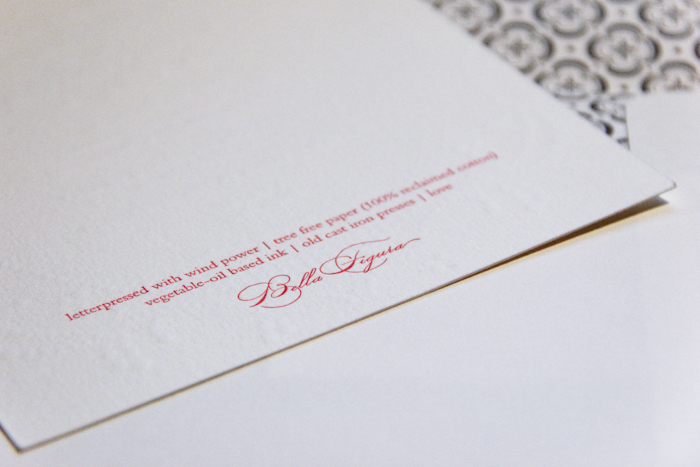 letterpressed with wind power | tree free paper (100% reclaimed cotton)
vegetable-oil based ink | old cast iron presses | love
Bella Figura